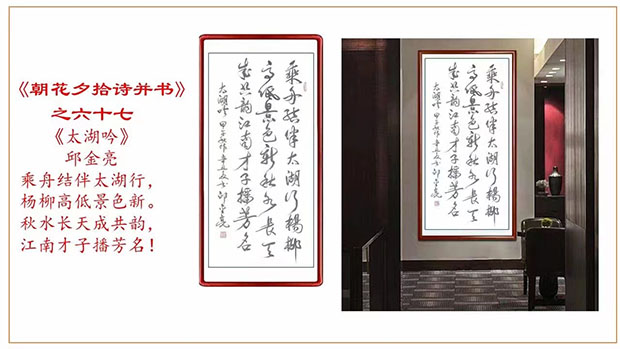 《朝花夕拾诗并书》
之六十七
《太湖吟》
邱金亮
乘舟结伴太湖行，
杨柳高低景色新。
秋水长天成共韵，
江南才子播芳名！
乘舟结伴太湖行杨柳
高低景色新秋水长天
成共韵江南才子播芳名
太湖吟 甲子作辛丑书邱金亮
乘舟结伴太湖行杨柳
高低景色新秋水长天
成共韵江南才子播芳名
太湖吟 甲子作辛丑书邱金亮